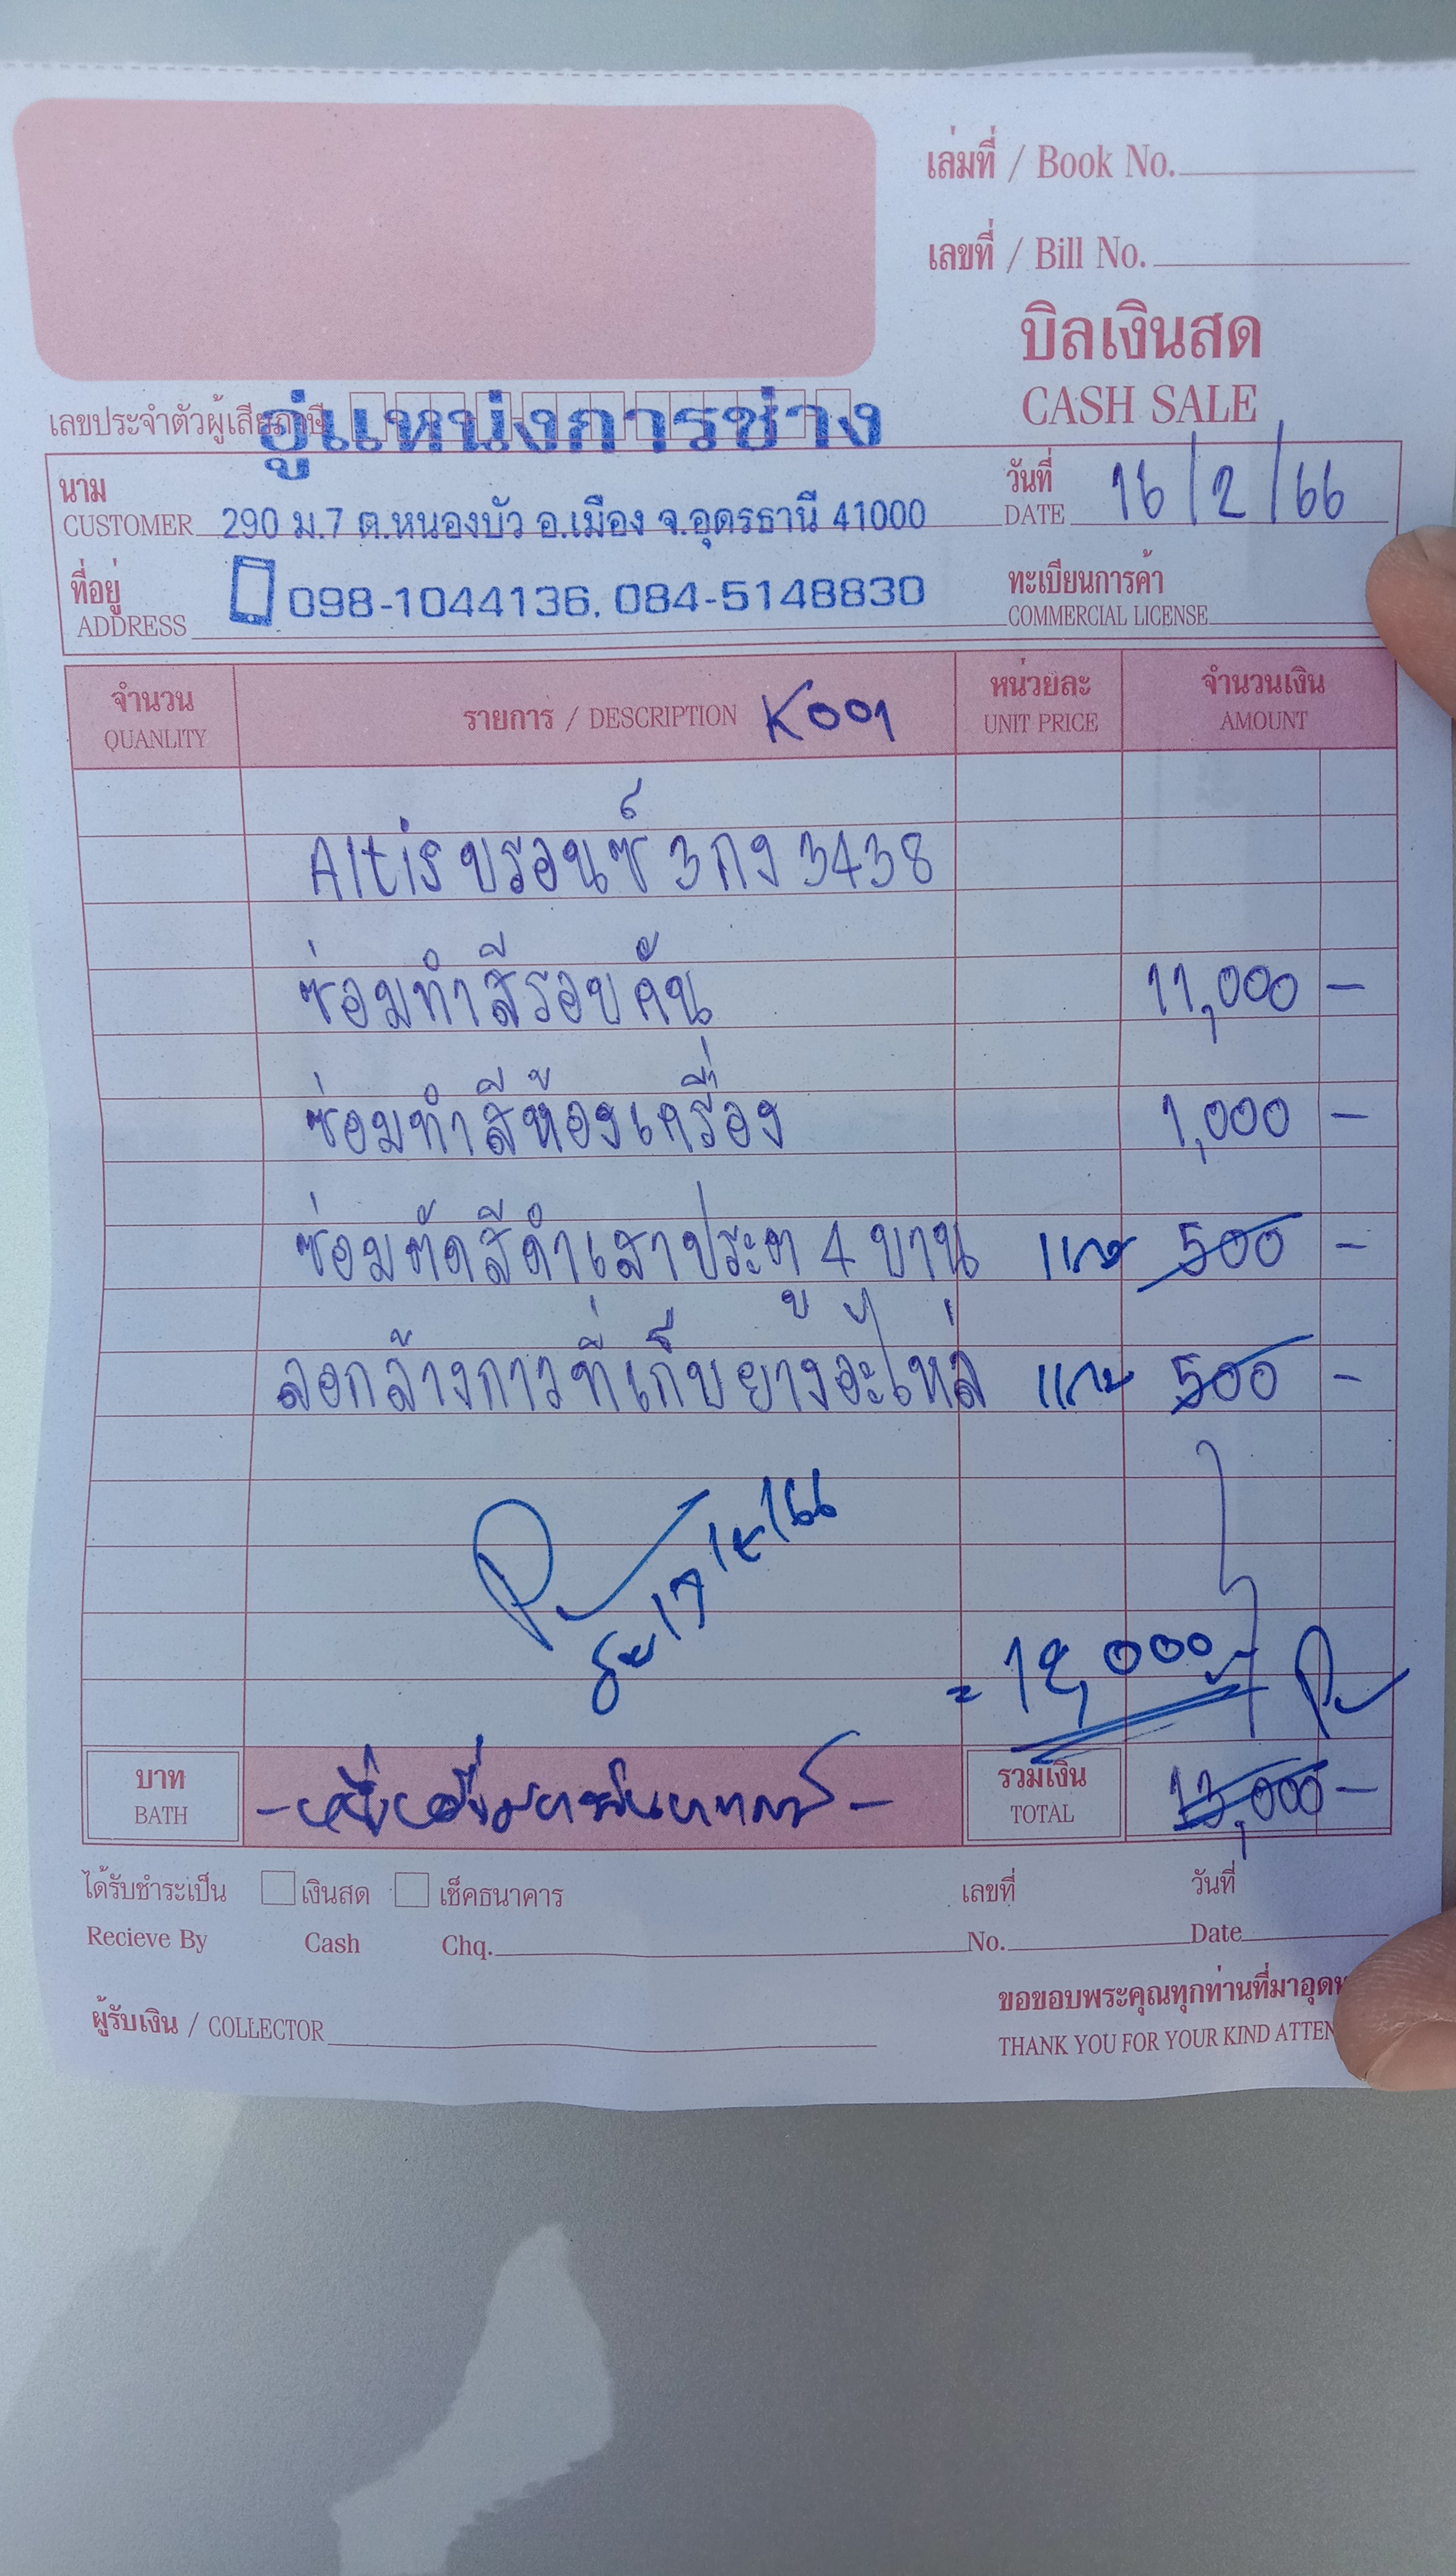 เล่มที่ / Book No.
เลขที่ / Bill No.
บิลเงินสด
CASH SALE
เลขประจำตัวผู้เสียภาษี
อู่แหน่งการช่าง
นาม
CUSTOMER
290 ม.7 ต.หนองบัว อ.เมือง จ.อุดรธานี 41000
วันที่
DATE
16/2/66
ที่อยู่
ADDRESS
098-1044136, 084-5148830
ทะเบียนการค้า
COMMERCIAL LICENSE
จำนวน
QUANLITY
รายการ / DESCRIPTION K001
หน่วยละ
UNIT PRICE
จำนวนเงิน
AMOUNT
Altis บรอนซ์ 3กง 3438
ซ่อมทำสีรอบคัน 11,000 -
ซ่อมทำสีห้องเครื่อง 1,000 -
ซ่อมตัดสีดำเสาประตู 4 บาน แถม 500 -
ลอกล้างกาวที่เก็บยางอะไหล่ แถม 500 -
= 12,000
บาท
BATH
รวมเงิน
TOTAL
13,000 -
ได้รับชำระเป็น เงินสด เช็คธนาคาร เลขที่ วันที่
Recieve By Cash Chq. No. Date
ผู้รับเงิน / COLLECTOR
ขอขอบพระคุณทุกท่านที่มาอุดห
THANK YOU FOR YOUR KIND ATTEN